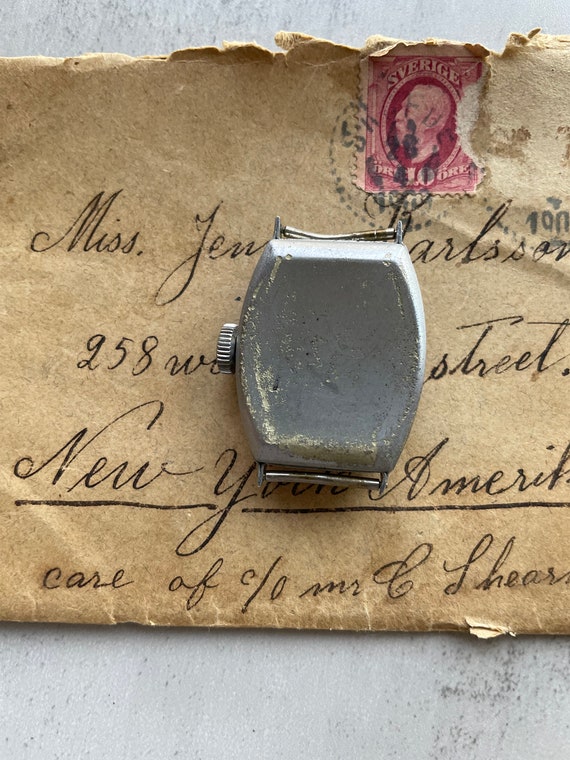 SVERIGE
10 ÖRE
Miss. Jen arlsson
258 w street.
New York Amerik
care of c/o mr C Shear